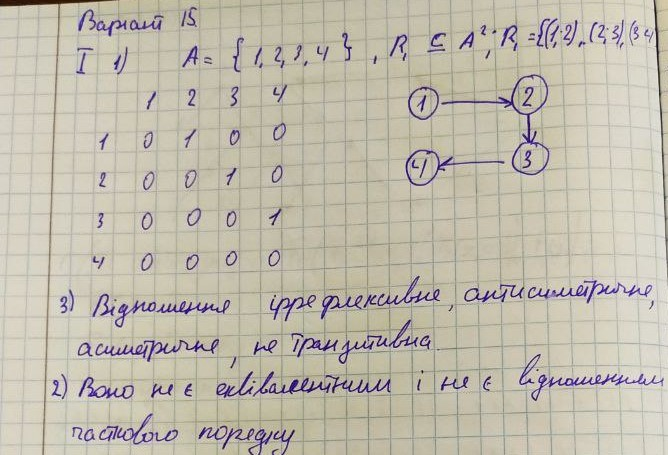 Варіант 15.
I 1) A = {1, 2, 3, 4}, R₁ ⊆ A²; R₁ = {(1;2), (2;3), (3 4
1 2 3 4
1 0 1 0 0
2 0 0 1 0
3 0 0 0 1
4 0 0 0 0
1 2
4 3
3) Відношення іррефлексивне, антисиметричне,
асиметричне, не транзитивна.
2) Воно не є еквівалентним і не є відношенням
часткового порядку